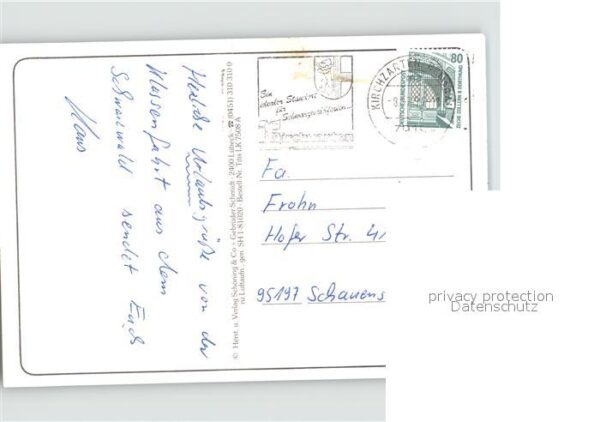 Herzliche Urlaubsgrüße von der
Klassenfahrt aus dem
Schwarzwald sendet Euch
Klaus
© Herst. u. Verlag Schöning & Co + Gebrüder Schmidt · 2400 Lübeck ☎ (0451) 310 310 0
ru Luftaufn. gen. SH 1-81020 · Bestell-Nr. Tms LK 7508 A
Ein
idealer Standort
für
Schwarzwaldferien
KIRCHZARTEN
80
Fa.
Frohn
Hofer Str. 41
95197 Schauens
privacy protection
Datenschutz